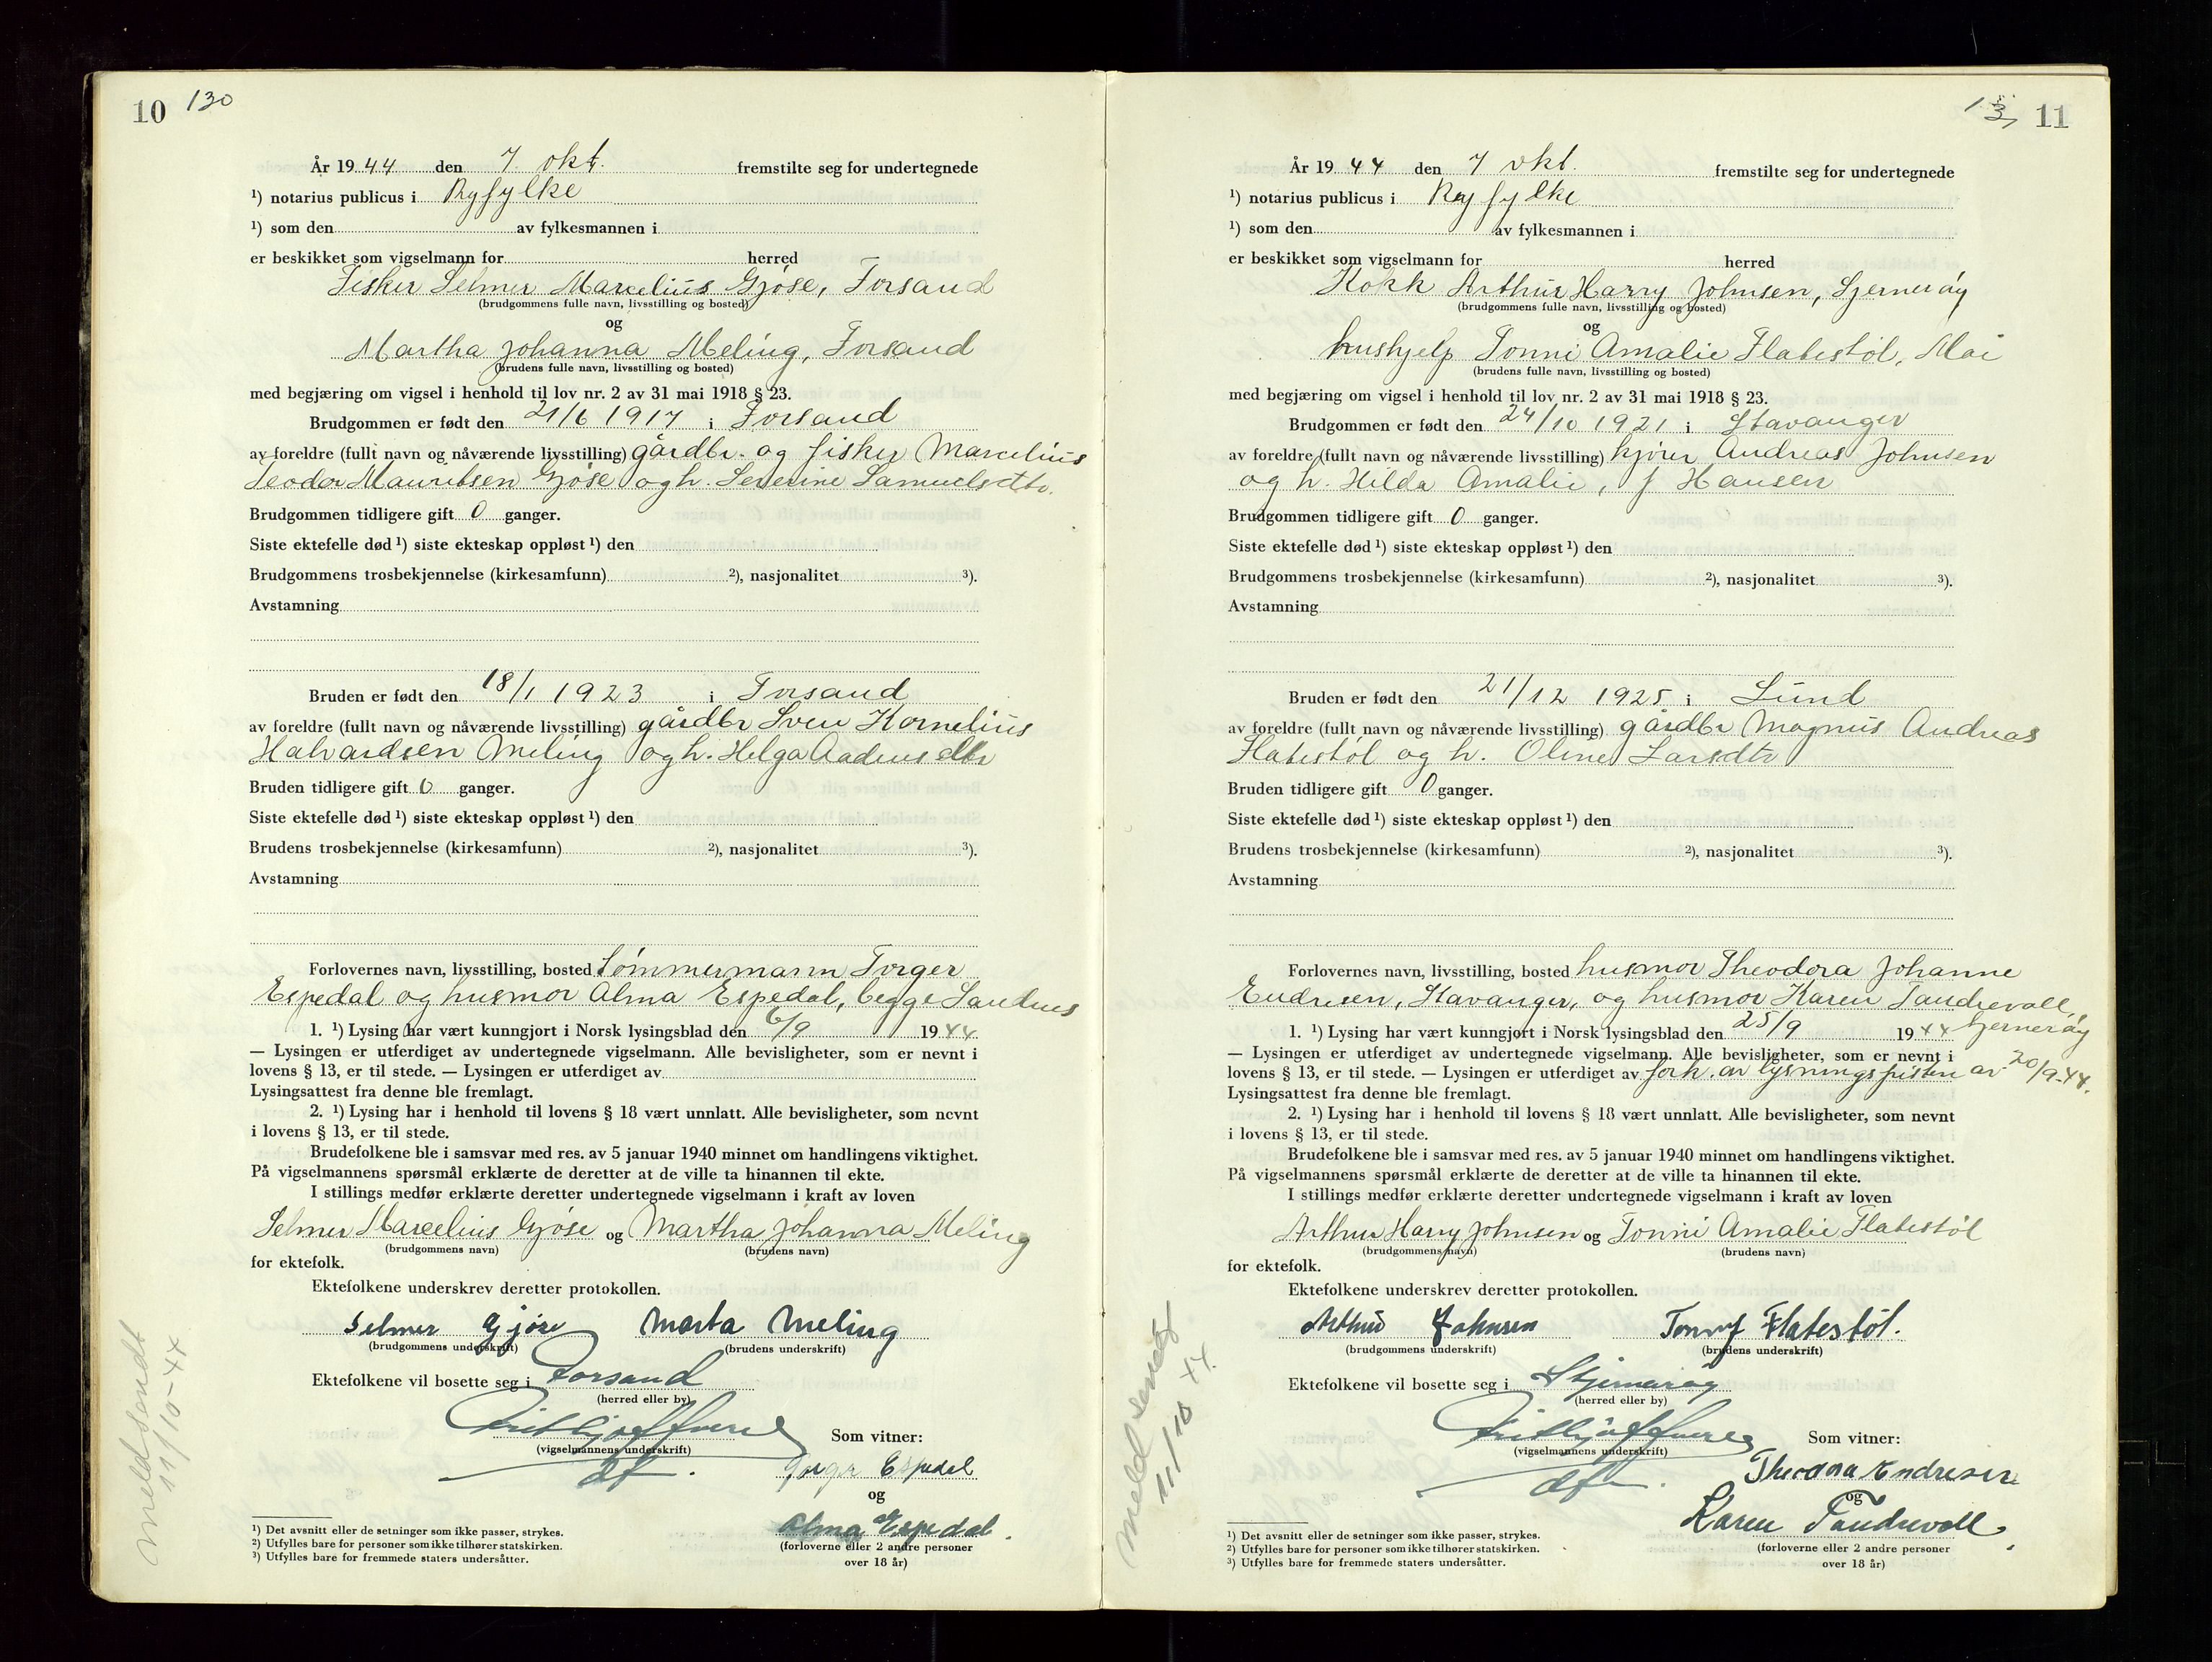 10 130
År 1944 den 7. okt. fremstilte seg for undertegnede
¹) notarius publicus i Ryfylke
¹) som den av fylkesmannen i
er beskikket som vigselmann for herred
Fisker Selmer Marcelius Gjøse, Forsand
(brudgommens fulle navn, livsstilling og bosted)
og
Martha Johanna Meling, Forsand
(brudens fulle navn, livsstilling og bosted)
med begjæring om vigsel i henhold til lov nr. 2 av 31 mai 1918 § 23.
Brudgommen er født den 21/6 1917 i Forsand
av foreldre (fullt navn og nåværende livsstilling) gårdbr. og fisker Marcelius
Teodor Mauritsen Gjøse og h. Severine Samuelsdtr.
Brudgommen tidligere gift 0 ganger.
Siste ektefelle død ¹) siste ekteskap oppløst ¹) den
Brudgommens trosbekjennelse (kirkesamfunn) ²), nasjonalitet ³).
Avstamning
Bruden er født den 18/1 1923 i Forsand
av foreldre (fullt navn og nåværende livsstilling) gårdbr Sven Kornelius
Halvardsen Meling og h. Helga Aadnesdtr
Bruden tidligere gift 0 ganger.
Siste ektefelle død ¹) siste ekteskap oppløst ¹) den
Brudens trosbekjennelse (kirkesamfunn) ²), nasjonalitet ³).
Avstamning
Forlovernes navn, livsstilling, bosted tømmermann Torger
Espedal og husmor Alma Espedal, begge Sandnes
1. ¹) Lysing har vært kunngjort i Norsk lysingsblad den 6/9 1944.
— Lysingen er utferdiget av undertegnede vigselmann. Alle bevisligheter, som er nevnt i
lovens § 13, er til stede. — Lysingen er utferdiget av
Lysingsattest fra denne ble fremlagt.
2. ¹) Lysing har i henhold til lovens § 18 vært unnlatt. Alle bevisligheter, som nevnt
i lovens § 13, er til stede.
Brudefolkene ble i samsvar med res. av 5 januar 1940 minnet om handlingens viktighet.
På vigselmannens spørsmål erklærte de deretter at de ville ta hinannen til ekte.
I stillings medfør erklærte deretter undertegnede vigselmann i kraft av loven
Selmer Marcelius Gjøse og Martha Johanna Meling
(brudgommens navn) (brudens navn)
for ektefolk.
Ektefolkene underskrev deretter protokollen.
Selmer Gjøse Marta Meling
(brudgommens underskrift) (brudens underskrift)
Ektefolkene vil bosette seg i Forsand
(herred eller by)
(vigselmannens underskrift) Som vitner:
df. Torger Espedal
og
Alma Espedal.
(forloverne eller 2 andre personer
over 18 år)
¹) Det avsnitt eller de setninger som ikke passer, strykes.
²) Utfylles bare for personer som ikke tilhører statskirken.
³) Utfylles bare for fremmede staters undersåtter.
Meld sendt
11/10-44
11
År 1944 den 7 okt. fremstilte seg for undertegnede
¹) notarius publicus i Ryfylke
¹) som den av fylkesmannen i
er beskikket som vigselmann for herred
Kokk Arthur Harry Johnsen, Sjernerøy
(brudgommens fulle navn, livsstilling og bosted)
og
hushjelp Tonni Amalie Flatestøl, Moi
(brudens fulle navn, livsstilling og bosted)
med begjæring om vigsel i henhold til lov nr. 2 av 31 mai 1918 § 23.
Brudgommen er født den 24/10 1921 i Stavanger
av foreldre (fullt navn og nåværende livsstilling) kjører Andreas Johnsen
og h. Hilda Amalie, f Hansen
Brudgommen tidligere gift 0 ganger.
Siste ektefelle død ¹) siste ekteskap oppløst ¹) den
Brudgommens trosbekjennelse (kirkesamfunn) ²), nasjonalitet ³).
Avstamning
Bruden er født den 21/12 1925 i Lund
av foreldre (fullt navn og nåværende livsstilling) gårdbr Magnus Andreas
Flatestøl og h. Oline Larsdtr
Bruden tidligere gift 0 ganger.
Siste ektefelle død ¹) siste ekteskap oppløst ¹) den
Brudens trosbekjennelse (kirkesamfunn) ²), nasjonalitet ³).
Avstamning
Forlovernes navn, livsstilling, bosted husmor Theodora Johanne
Endresen, Stavanger, og husmor Karen Tandrevoll,
Sjernerøy
1. ¹) Lysing har vært kunngjort i Norsk lysingsblad den 25/9 1944
— Lysingen er utferdiget av undertegnede vigselmann. Alle bevisligheter, som er nevnt i
lovens § 13, er til stede. — Lysingen er utferdiget av fork. av lysningsfristen av 20/9-44.
Lysingsattest fra denne ble fremlagt.
2. ¹) Lysing har i henhold til lovens § 18 vært unnlatt. Alle bevisligheter, som nevnt
i lovens § 13, er til stede.
Brudefolkene ble i samsvar med res. av 5 januar 1940 minnet om handlingens viktighet.
På vigselmannens spørsmål erklærte de deretter at de ville ta hinannen til ekte.
I stillings medfør erklærte deretter undertegnede vigselmann i kraft av loven
Arthur Harry Johnsen og Tonni Amalie Flatestøl
(brudgommens navn) (brudens navn)
for ektefolk.
Ektefolkene underskrev deretter protokollen.
Arthur Johnsen Tonny Flatestøl.
(brudgommens underskrift) (brudens underskrift)
Ektefolkene vil bosette seg i Stjernerøy
(herred eller by)
(vigselmannens underskrift) Som vitner:
df. Theodora Endresen
og
Karen Tandrevoll.
(forloverne eller 2 andre personer
over 18 år)
¹) Det avsnitt eller de setninger som ikke passer, strykes.
²) Utfylles bare for personer som ikke tilhører statskirken.
³) Utfylles bare for fremmede staters undersåtter.
Meld sendt
11/10 44.